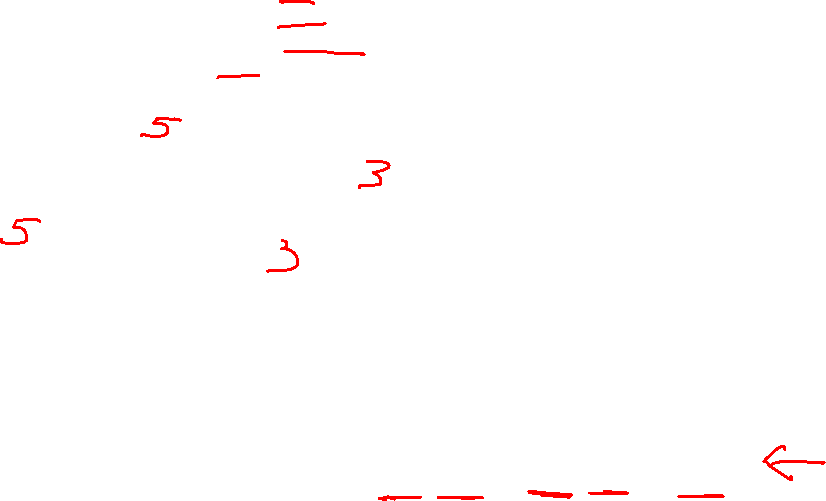 5
3
5
3